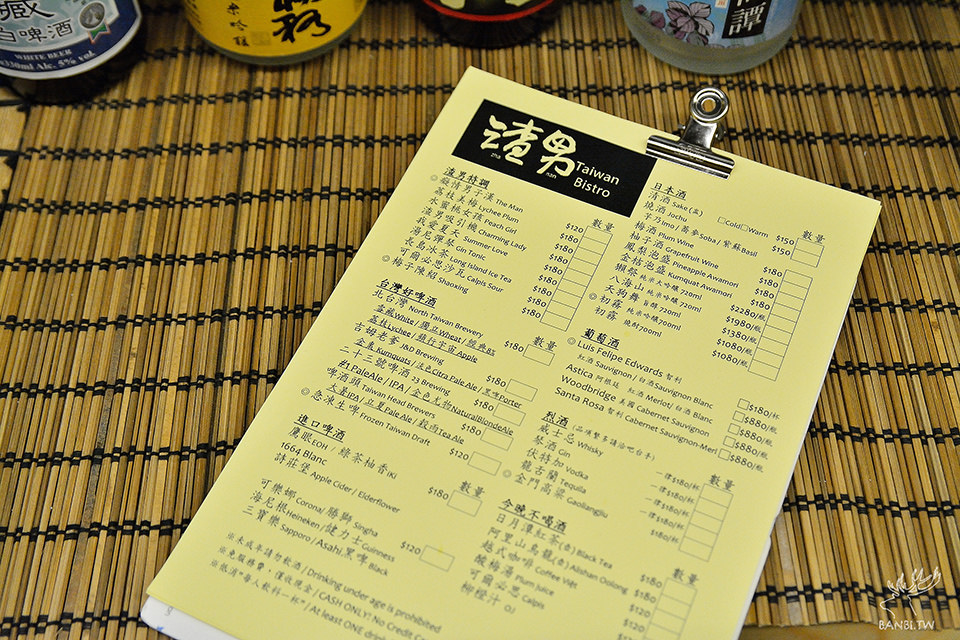 白啤酒
WHITE BEER
330ml Alc. 5% vol.
渣男
zha nan
Taiwan
Bistro
渣男特調
◎ 癡情男子漢 The Man $120
荔枝美梅 Lychee Plum $180
水蜜桃女孩 Peach Girl $180
渣男吸引機 Charming Lady $180
我愛夏天 Summer Love $180
湯尼彈琴 Gin Tonic $180
長島冰茶 Long Island Ice Tea $180
可爾必思沙瓦 Calpis Sour $180
◎ 梅子陳紹 Shaoxing
台灣好啤酒 數量
北台灣 North Taiwan Brewery $180
雪藏White / 國立Wheat / 經典8%
荔枝Lychee / 騎行宇宙Apple
吉姆老爹 J&D Brewing $180
金棗Kumquats / 迷色Citra Pale Ale / 黑咖Porter
二十三號啤酒 23 Brewing $180
#1 PaleAle / IPA / 金色尤物NaturalBlondeAle
啤酒頭 Taiwan Head Brewers $180
大暑IPA / 立夏Pale Ale / 穀雨Tea Ale
◎ 急凍生啤 Frozen Taiwan Draft $120
進口啤酒 數量
鷹眼EOH / 綠茶柚香IKI $180
1664 Blanc
詩莊堡 Apple Cider / Elderflower
可樂娜 Corona / 勝獅 Singha $120
海尼根Heineken / 健力士Guinness
三寶樂 Sapporo / Asahi黑啤 Black
※未成年請勿飲酒 / Drinking under age is prohibited
※免服務費,僅收現金 / CASH ONLY! No Credit Ca
※低消"每人飲料一杯" / At least ONE drin
日本酒 數量
清酒 Sake(盅) □Cold□Warm $150
燒酒 Jochu $150
芋乃Imo / 蕎麥Soba / 紫蘇Basil
梅酒 Plum Wine $180
柚子酒 Grapefruit Wine $180
鳳梨泡盛 Pineapple Awamori $180
金桔泡盛 Kumquat Awamori $180
獺祭 純米大吟釀 720ml $2280/瓶
八海山 純米吟釀 720ml $1980/瓶
天狗舞 旨醇 720ml $1380/瓶
◎ 初霧 純米吟釀 500ml $1080/瓶
◎ 初霧 燒酎700ml $1080/瓶
葡萄酒
◎ Luis Felipe Edwards 智利
紅酒 Sauvignon / 白酒 Sauvignon Blanc $180/杯
Astica 阿根廷 紅酒 Merlot / 白酒 Blanc $880/瓶
Woodbridge 美國 Cabernet Sauvignon $880/瓶
Santa Rosa 智利 Cabernet Sauvignon-Merl $880/瓶
烈酒 (品項繁多請洽吧台手) 數量
威士忌 Whisky 一律$180/杯
琴酒 Gin 一律$180/杯
伏特加 Vodka 一律$180/杯
龍舌蘭 Tequila 一律$180/杯
◎ 金門高粱 Caoliangjiu
今晚不喝酒 數量
日月潭紅茶(壺) Black Tea $180
阿里山烏龍(壺) Alishan Oolong $180
越式咖啡 Coffee Việt $120
酸梅湯 Plum Juice $120
可爾必思 Calpis
柳橙汁 OJ
BANBI.TW